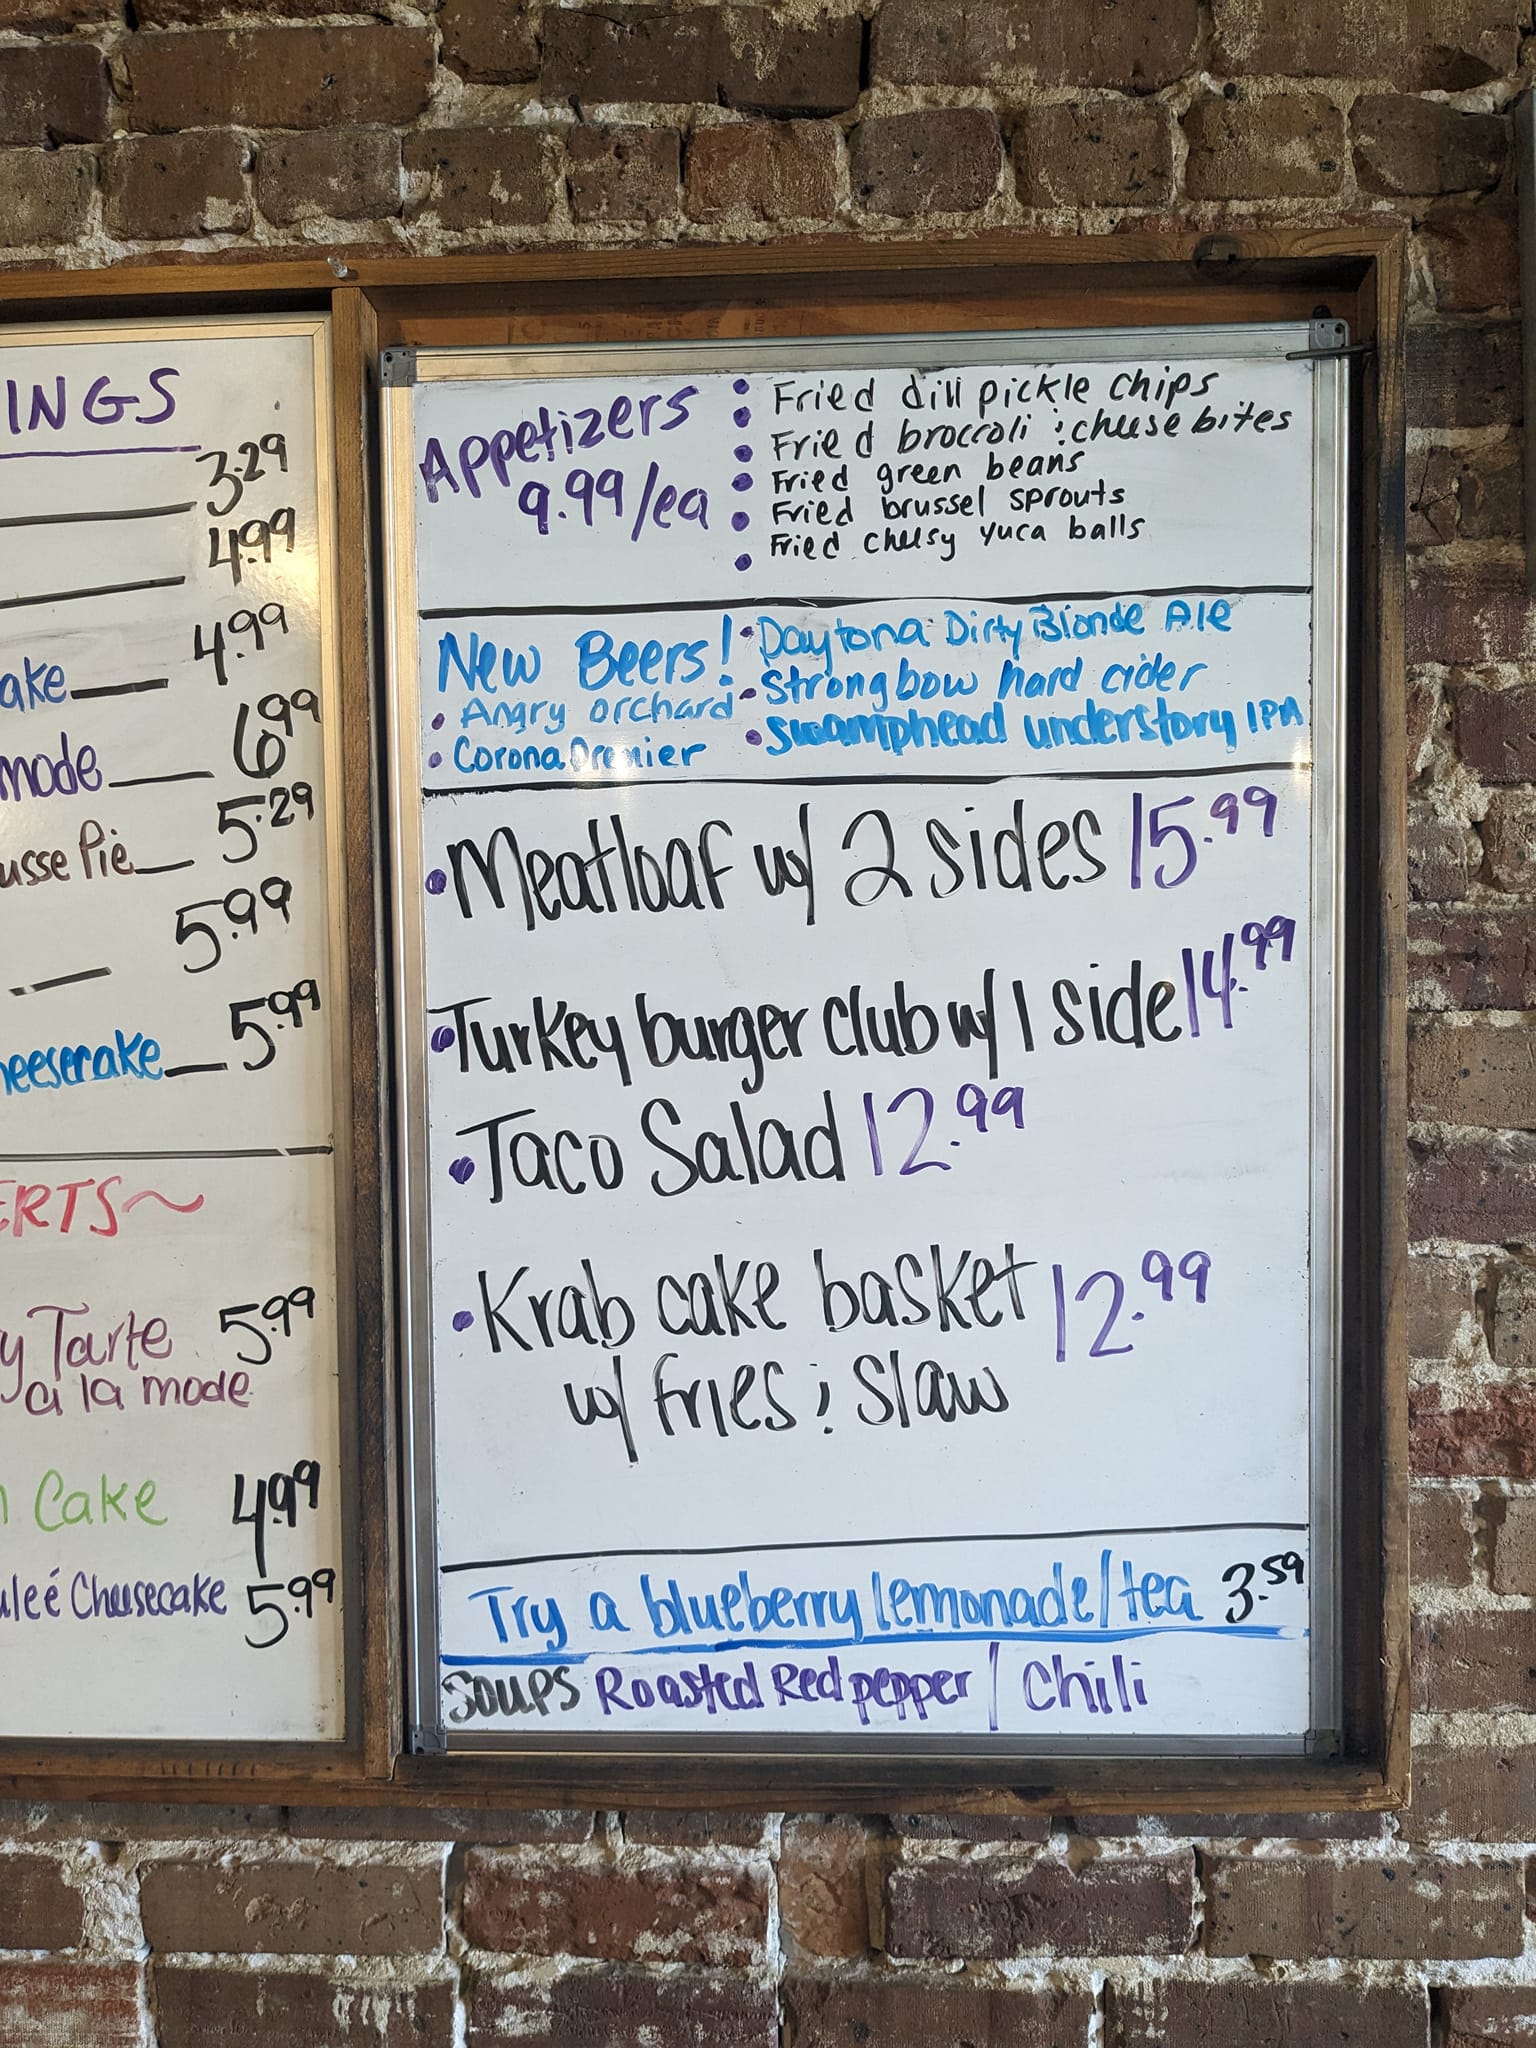 INGS
3.29
4.99
ake 4.99
mode 6.99
usse Pie 5.29
5.99
heesecake 5.99
ERTS~
y Tarte 5.99
a la mode
n Cake 4.99
uleé Cheesecake 5.99
Appetizers
9.99/ea
• Fried dill pickle chips
• Fried broccoli & cheese bites
• Fried green beans
• Fried brussel sprouts
• Fried cheesy yuca balls
New Beers!
• Angry orchard
• Corona Premier
• Daytona Dirty Blonde Ale
• Strongbow hard cider
• Swamphead understory IPA
• Meatloaf w/ 2 sides 15.99
• Turkey burger club w/ 1 side 14.99
• Taco Salad 12.99
• Krab cake basket 12.99
w/ fries & slaw
Try a blueberry lemonade/tea 3.59
Soups Roasted Red pepper / Chili